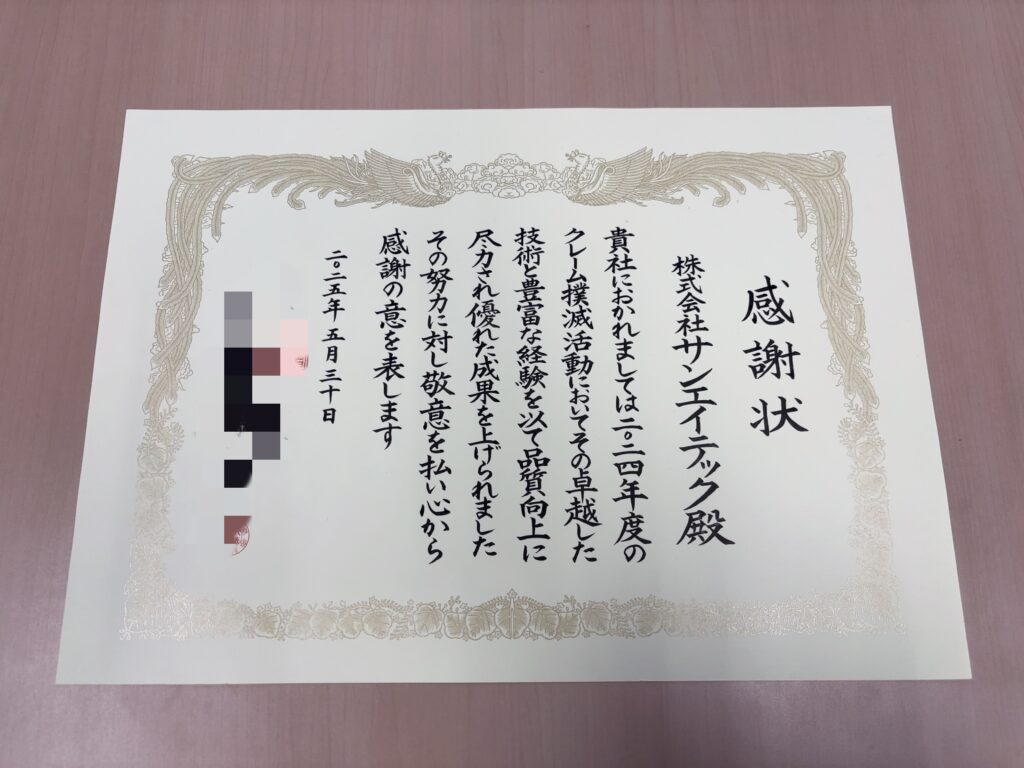 感謝状
株式会社サンエイテック殿
貴社におかれましては二〇二四年度の
クレーム撲滅活動においてその卓越した
技術と豊富な経験を以て品質向上に
尽力され優れた成果を上げられました
その努力に対し敬意を払い心から
感謝の意を表します
二〇二五年 五月三十日